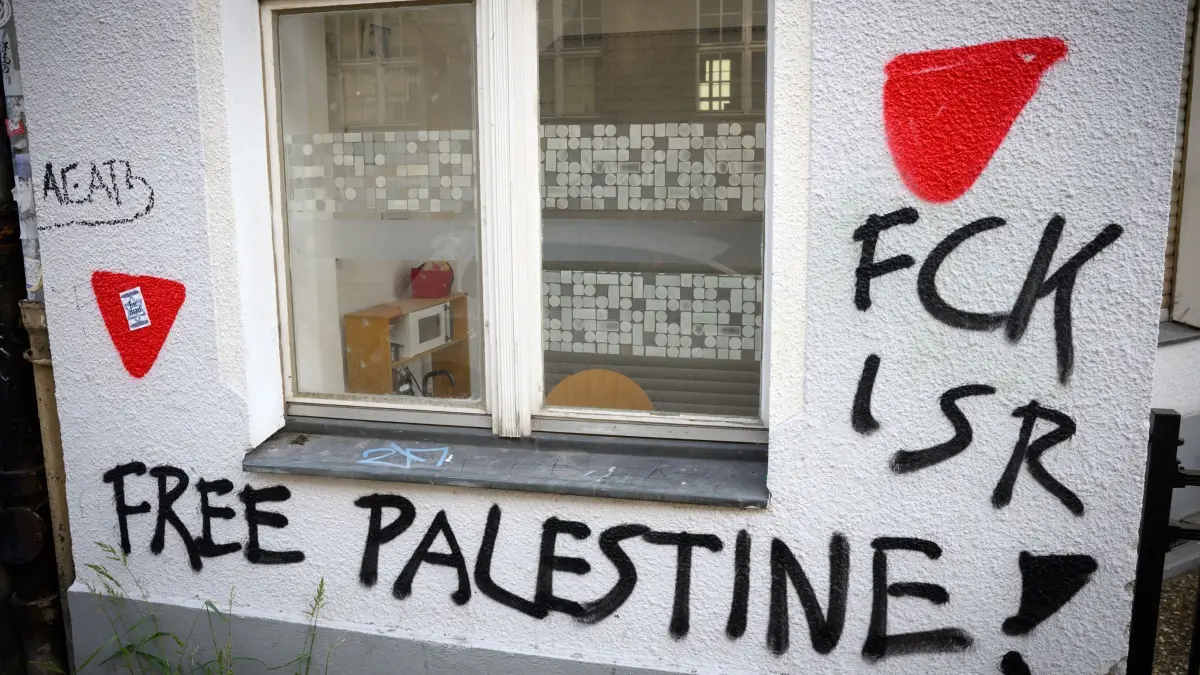 FCK
ISR
FREE PALESTINE!